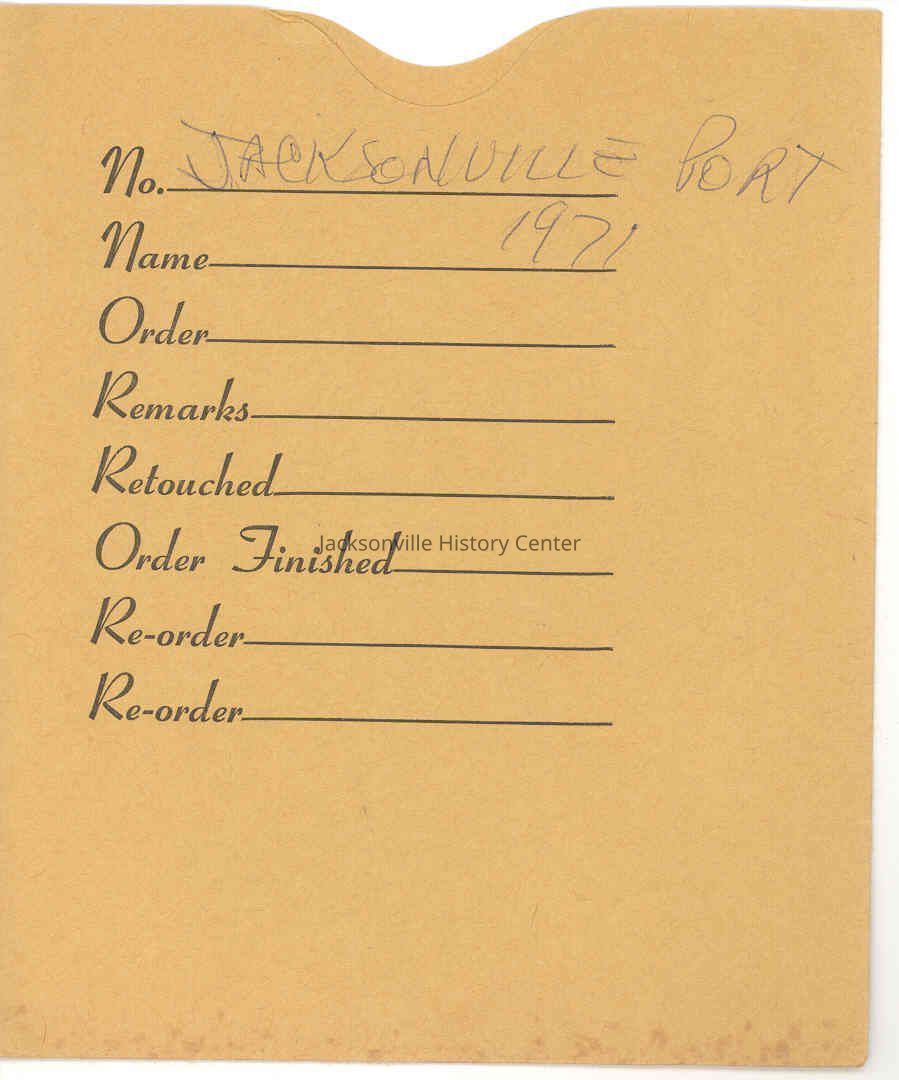 No. JACKSONVILLE PORT
Name 1971
Order
Remarks
Retouched
Order Finished
Jacksonville History Center
Re-order
Re-order